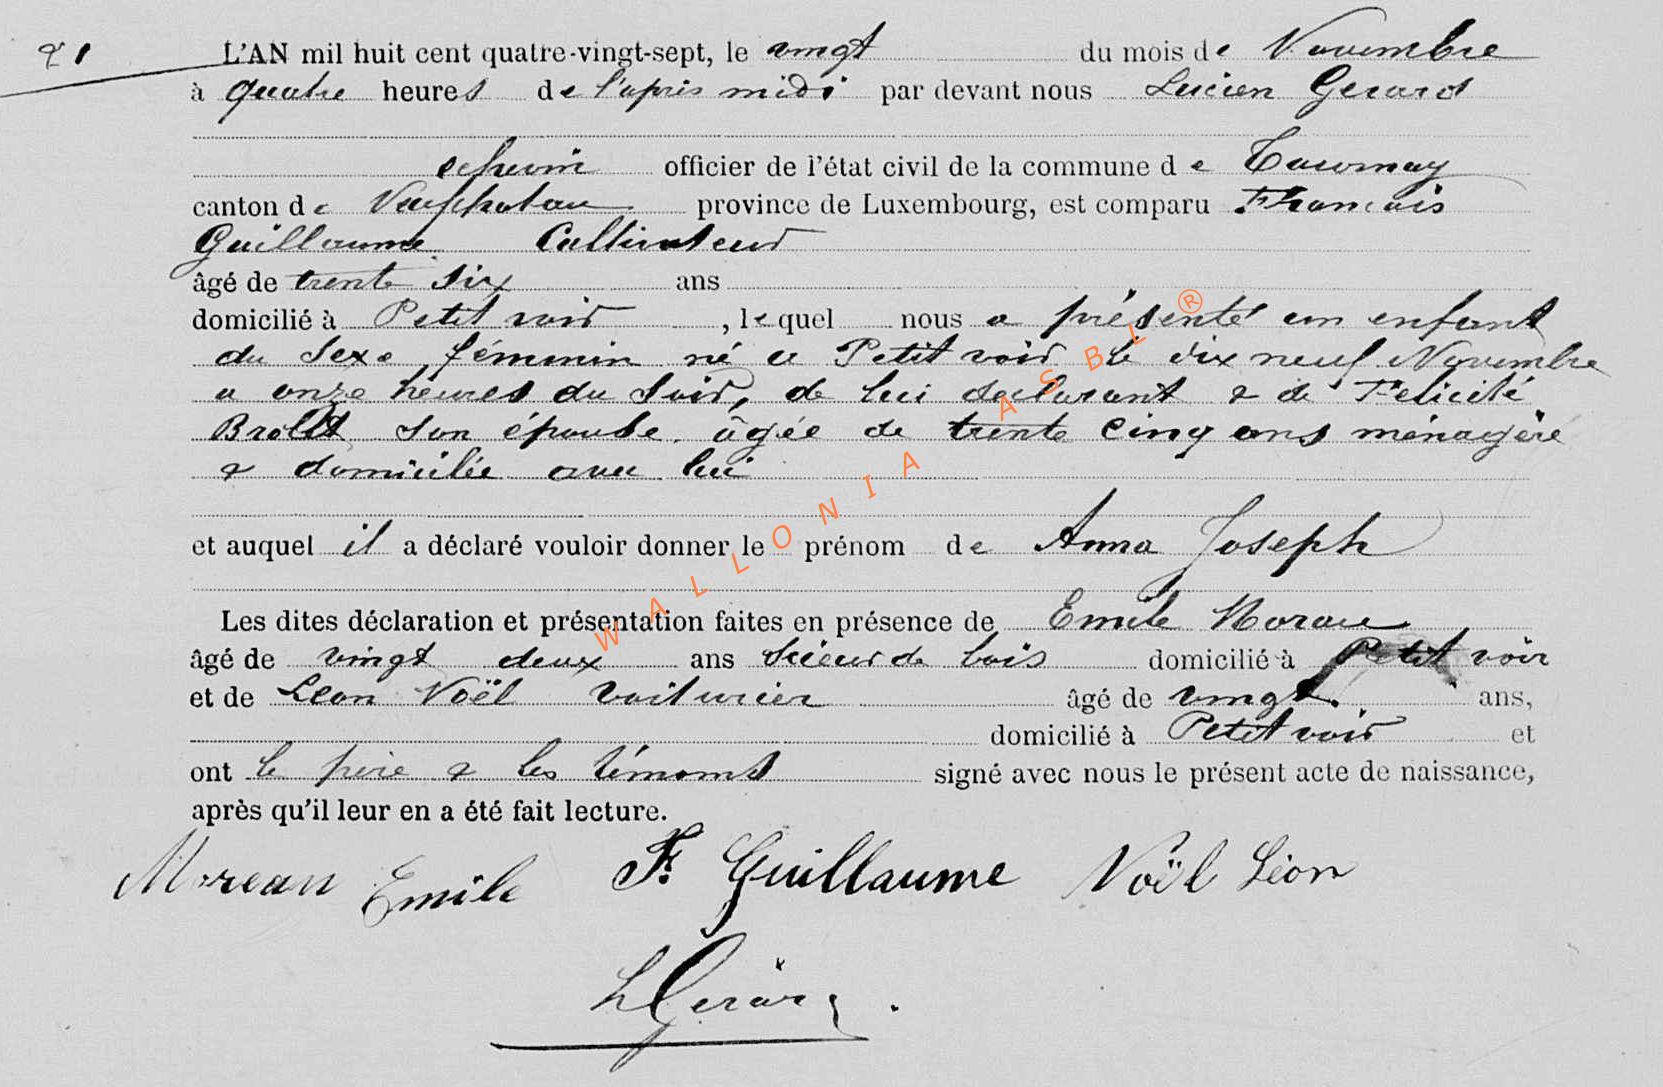 21
L'AN mil huit cent quatre-vingt-sept, le vingt du mois de Novembre
à quatre heures de l'après midi par devant nous Lucien Gerard
echevin officier de l'état civil de la commune de Tournay
canton de Neufchateau province de Luxembourg, est comparu Francois
Guillaume Cultivateur
âgé de trente six ans
domicilié à Petitvoir , lequel nous a présenté un enfant
du sexe féminin né a Petitvoir le dix neuf Novembre
a onze heures du soir, de lui declarant & de Felicité
son épouse. âgée de trente cinq ans ménagère
& domiciliée avec lui
et auquel il a déclaré vouloir donner le prénom de Anna Joseph
Les dites déclaration et présentation faites en présence de Emile Moreau
âgé de vingt deux ans scieur de bois domicilié à Petitvoir
et de Leon Noël voiturier âgé de vingt ans,
domicilié à Petitvoir et
ont le père & les témoins signé avec nous le présent acte de naissance,
après qu'il leur en a été fait lecture.
Moreau Emile F. Guillaume Noël Léon
L Gerard
WALLONIA ASBL ®